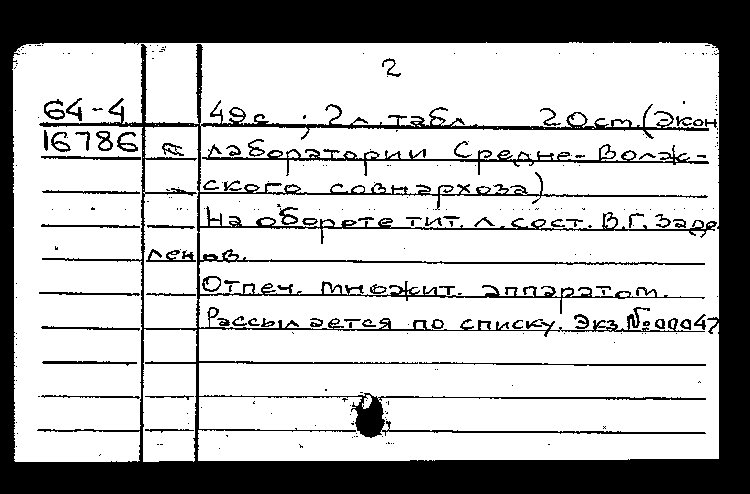 2
64-4 49с ; 2 л. табл. 20 ст. (Экон
16786 лаборатории Средне-Волж-
ского совнархоза)
На обороте тит. л. сост. В.Г. Заде
ленов.
Отпеч. множит. аппаратом.
Рассылается по списку. Экз. №00047